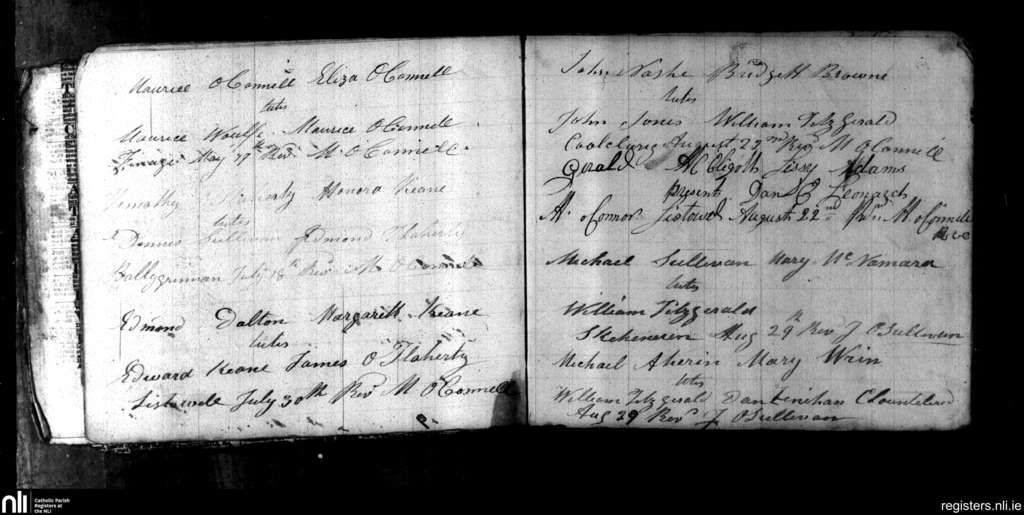 Maurice O Connell Eliza O Connell
tutes
Maurice Woulfe Maurice O Connell
May 17th Revd M. O Connell
Timothy Flaherty Honora Keane
tutes
Dennis Sullivan Edmond Flaherty
Ballygrinnan July 18th Revd M O Connell
Edmond Dalton Margarett Keane
tutes
Edward Keane James O Flaherty
Listowell July 30th Revd M O Connell
John Nashe Bridgett Browne
tutes
John Jones William Fitzgerald
August 22nd Revd M O Connell
Gerald McEligott Jessy Adams
present Danl
O Connor Listowel August 22nd M O Connell
Michael Sullivan Mary McNamara
tutes
William Fitzgerald
Aug 29th Revd J O Sullivan
Michael Aherin Mary Wrin
tutes
William Fitzgerald Dan
Aug 29 Revd J O Sullivan
nli
Catholic Parish
Registers at
the NLI
registers.nli.ie